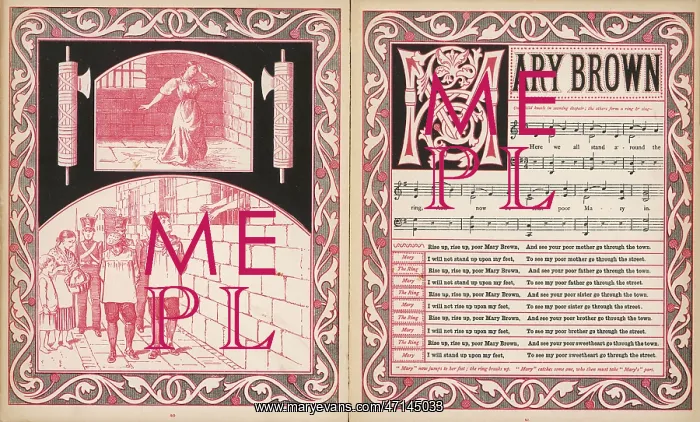 MARY BROWN
Here we all stand a - round the
ring, And now poor Ma - ry in.
Rise up, rise up, poor Mary Brown, And see your poor mother go through the town.
Mary I will not stand up upon my feet, To see my poor mother go through the street.
The Ring Rise up, rise up, poor Mary Brown, And see your poor father go through the town.
Mary I will not stand up upon my feet, To see my poor father go through the street.
The Ring Rise up, rise up, poor Mary Brown, And see your poor sister go through the town.
Mary I will not rise up upon my feet, To see my poor sister go through the street.
The Ring Rise up, rise up, poor Mary Brown, And see your poor brother go through the town.
Mary I will not rise up upon my feet, To see my poor brother go through the street.
The Ring Rise up, rise up, poor Mary Brown, And see your poor sweetheart go through the town.
Mary I will stand up upon my feet, To see my poor sweetheart go through the street.
"Mary" now jumps to her feet; the ring breaks up. "Mary" catches some one, who then must take "Mary's" part.
ME
PL
ME
PL
www.maryevans.com/47145038